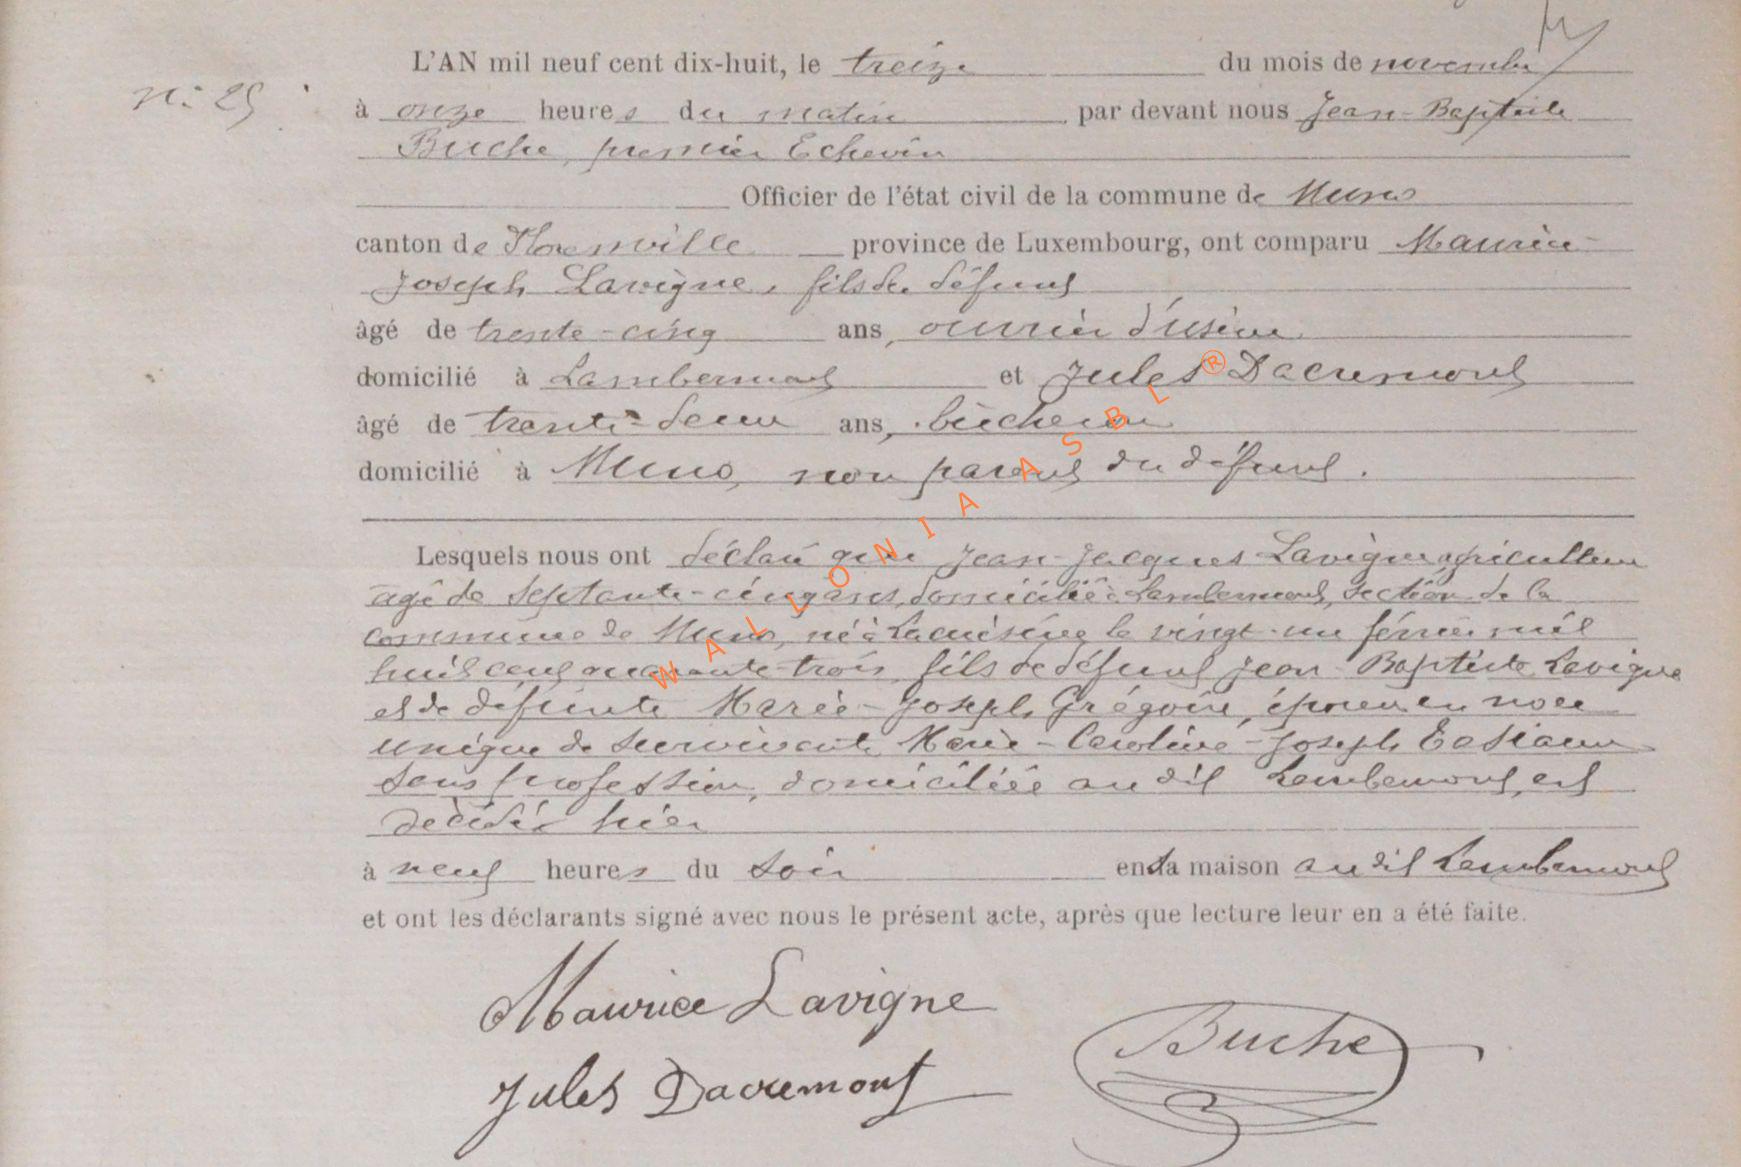 L'AN mil neuf cent dix-huit, le treize du mois de novembre
n: 25
à onze heures du matin par devant nous Jean-Baptiste
Buche, premier Echevin
Officier de l'état civil de la commune de Muno
canton de Florenville province de Luxembourg, ont comparu Maurice-
Joseph Lavigne, fils du défunt
âgé de trente-cinq ans, ouvrier d'usine
domicilié à Lambermont et Jules Dacremont
âgé de trente-deux ans, bûcheron
domicilié à Muno, non parent du défunt.
Lesquels nous ont déclaré que Jean-Jacques Lavigne agriculteur
âgé de septante-cinq ans, domicilié à Lambermont, section de la
commune de Muno, né à Lacuisine le vingt-un février mil
huit cent quarante-trois, fils de défunt Jean-Baptiste Lavigne
et de défunte Marie-Joseph Grégoire, époux en noce
unique de survivante Marie-Caroline-Joseph
sans profession, domiciliée au dit Lambermont, est
décédé hier
à neuf heures du soir en sa maison au dit Lambermont
et ont les déclarants signé avec nous le présent acte, après que lecture leur en a été faite.
Maurice Lavigne
Buche
Jules Dacremont
WALLONIA ASBL ®